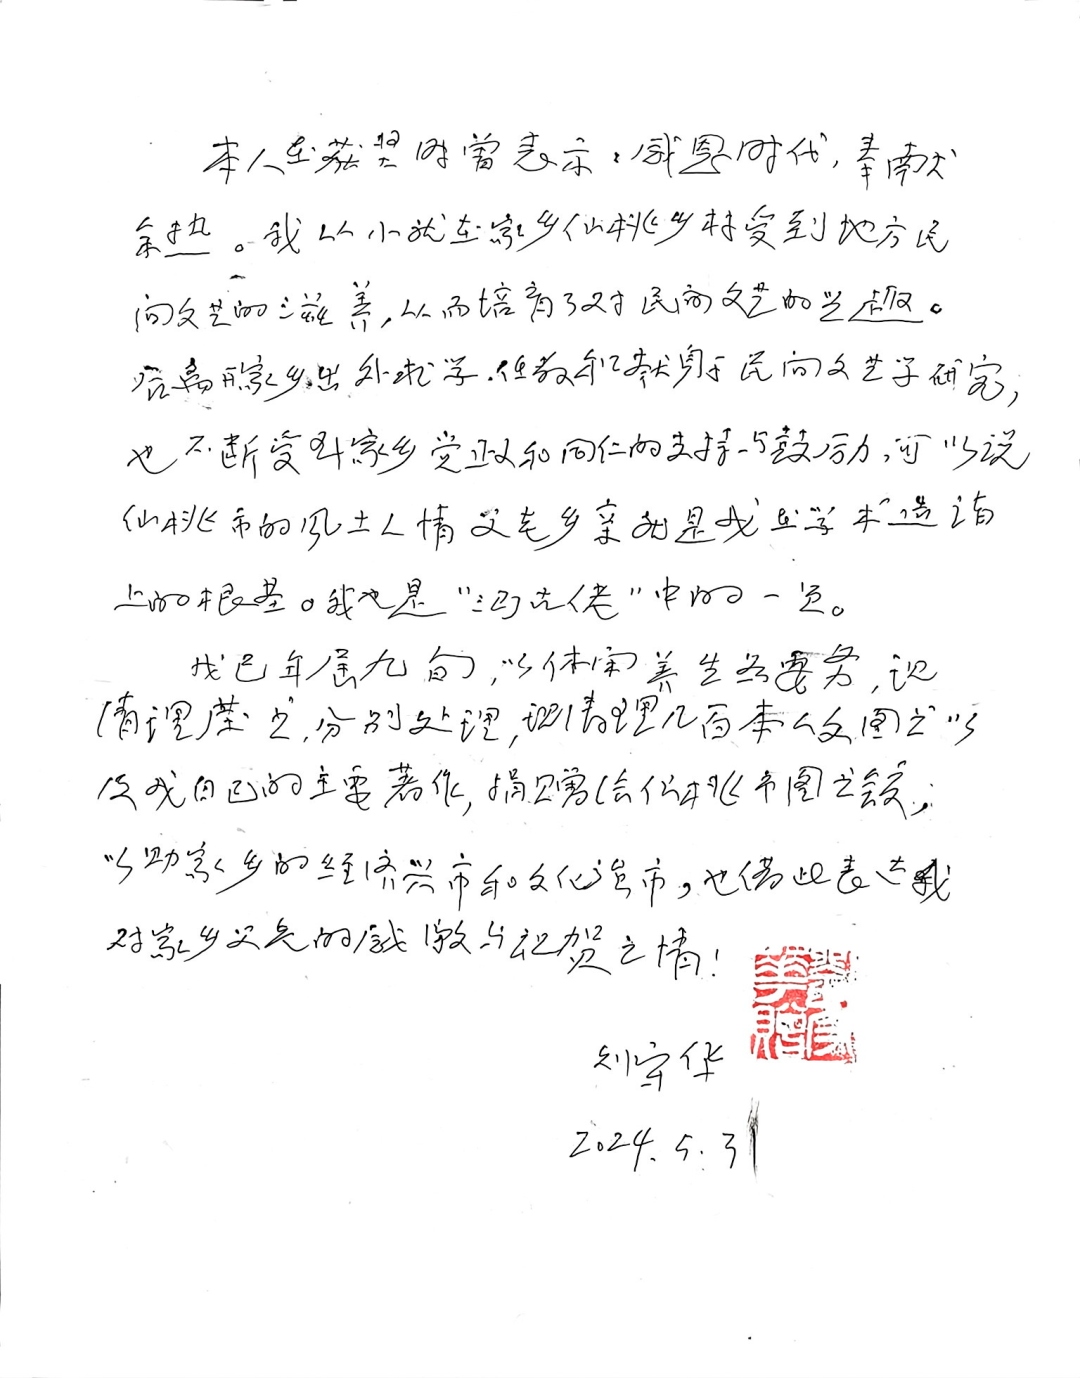 本人在获奖时曾表示：感恩时代，奉献
余热。我从小就在家乡仙桃乡村受到地方民
间文艺的滋养，从而培育了对民间文艺的兴趣。
后离开家乡出外求学、任教和献身于民间文艺学研究，
也不断受到家乡党政和同仁的支持与鼓励，可以说
仙桃市的风土人情父老乡亲就是我在学术造诣
上的根基。我也是“沔古佬”中的一员。
我已年届九旬，以休闲养生为要务，现
清理藏书，分别处理，现清理几百本人文图书以
及我自己的主要著作，捐赠给仙桃市图书馆，
以助家乡的经济兴市和文化强市，也借此表达我
对家乡父老的感激与祝贺之情！
刘守华
2024.5.31